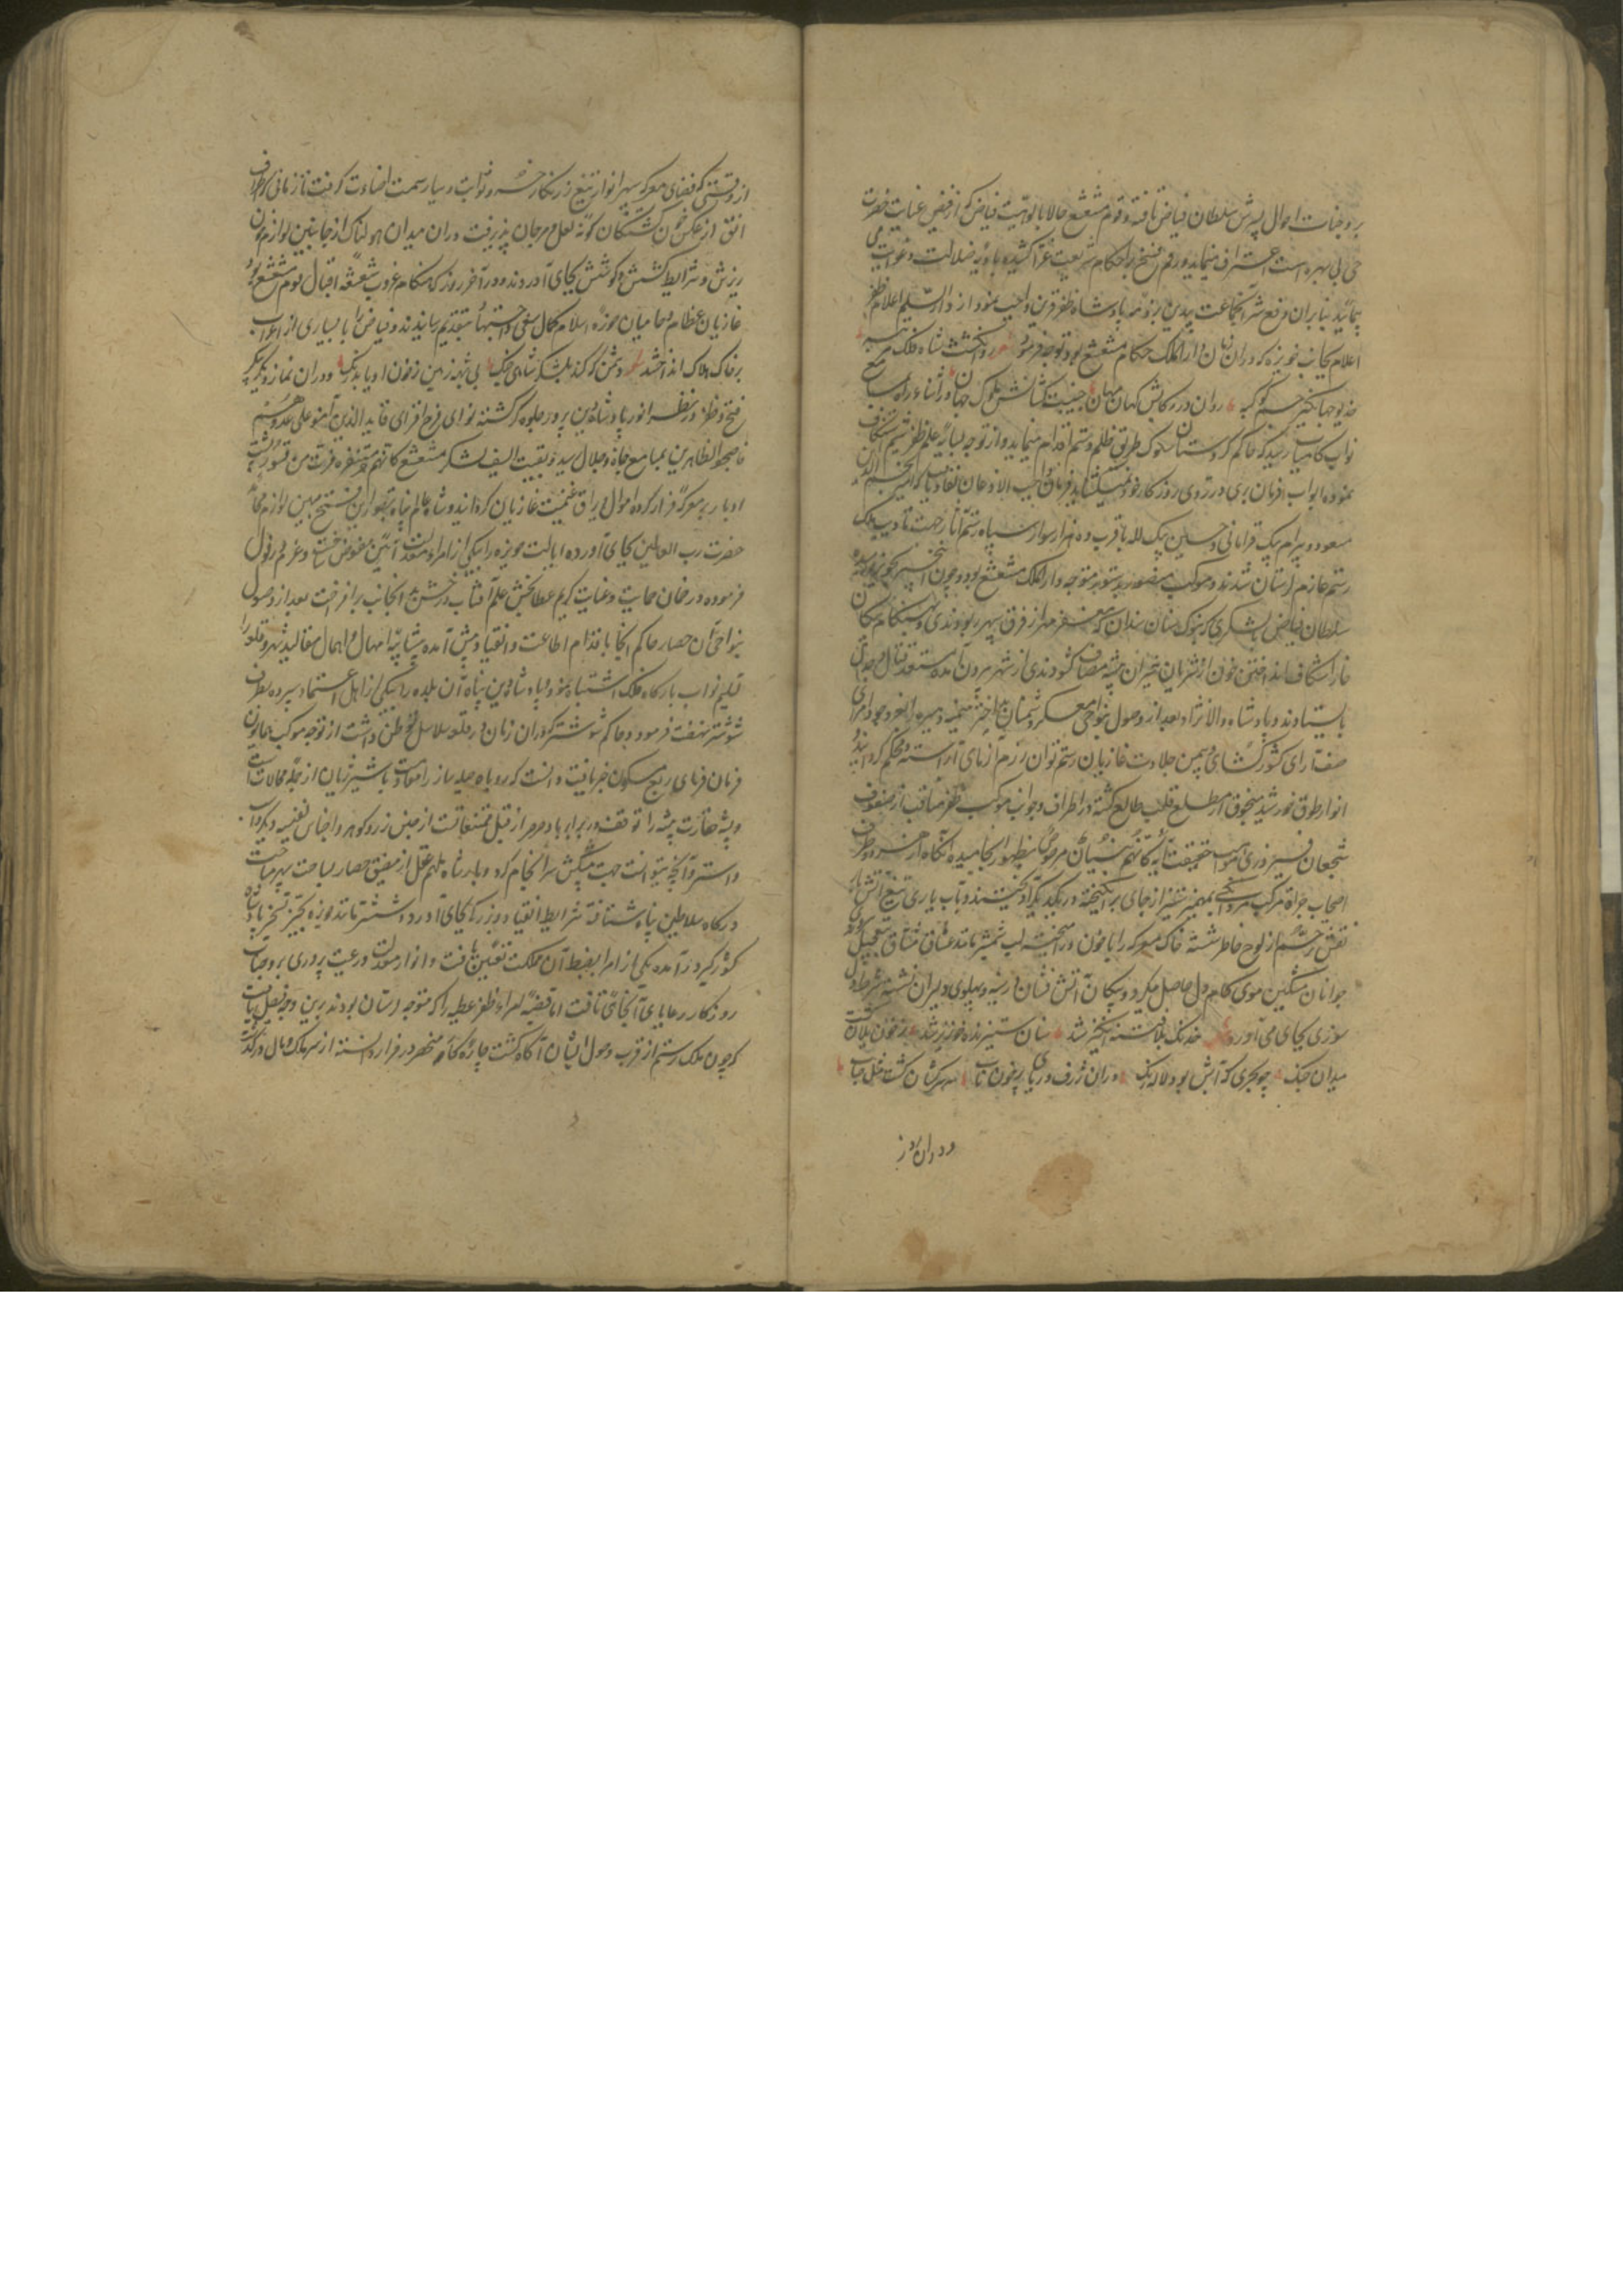 بر وجنات احوال پسرش سلطان فیاض تافته و قوم مشعشع حالا بالوهیت فیاض که از فیض عنایت حضرت
حی بی بهره است اعتراف مینمایند و رقم نسخ بر احکام شریعت غرا کشیده بادیه ضلالت و غوایت می
پیمایند بنابران دفع شر آن جماعت بیدین بر ذمه پادشاه ظفر قرین واجب نمود و از دار السلام اعلام ظفر
اعلام بجانب حویزه که در آن زمان دار الملک حکام مشعشع بود توجه فرمود روان گشت شاه فلک مرتبه
خدیو جهانگیر انجم کوکبه روان در رکابش کهان و مهان جنیبت کشانش ملوک جهان و در اثناء راه بمسامع
نواب کامیاب رسید که حاکم لرستان سلوک طریق ظلم و ستم اقدام مینماید و از توجه بسایه علم ظفر شیم استنکاف
نموده ابواب بر روی روزگار خود میگشاید فرمان واجب الاذعان نفاذ یافت که امیر نجم الدین
مسعود و بیرام بیک قرامانی و حسین بیک لله با قرب ده هزار سوار از سپاه رستم آثار جهت تادیب ملک
رستم عازم لرستان شدند و موکب منصور بدستور متوجه دار الملک مشعشع بود و چون این خبر بحویزه رسید
سلطان فیاض با لشکری که بنوک سنان سندان مغفر از فرق سپهر ربودندی و بهنگام پیکان
خارا شکاف انداختن خون از شریان شیران بیشه مصاف گشودندی از شهر بیرون آمده مستعد قتال و جدال
بایستادند و پادشاه والا نژاد بعد از وصول بنواحی معسکر دشمنان میمنه و میسره را بفر وجود امرای
صف آرای کشور گشای و یمین جلادت غازیان رستم توان رزم آزمای آراسته و محکم گردانید
انوار طوق خورشید سنجوق از مطلع قلب طالع گشته در اطراف و جوانب موکب ظفر مناقب از صفوف
شجعان فیروزی مآب حقیقت آیه کانهم بنیان مرصوص بظهور انجامیده آنگاه از هر دو طرف
اصحاب جرأة مرکب بمهمیز تیز از جای برانگیخته در یکدیگر آویختند و بآب یاری تیغ آتش بار
نقش ترحم از لوح خاطر شسته خاک معرکه را با خون در آمیختند لب شمشیر مانند عشاق مشتاق
جوانان مشکین موی کام دل حاصل میکرد و پیکان آتش فشان در سینه و پهلوی دلیران نشسته شرط دل
سوزی بجای می آورد خدنگ بلا فتنه انگیز شد سنان ستیزنده خونریز شد ز خون یلان گشت
میدان جنگ چو بحری که آبش بود لاله رنگ در آن ژرف دریای پر خون ناب سر سرکشان گشت مثل حباب
و در آن روز
از وقتی که فضای معرکه سپهر از انوار تیغ زرنگار خسرو ثوابت و سیار سمت اضاءت گرفت تا زمانی که اطراف
افق از عکس خون کشتگان گونه لعل و مرجان پذیرفت در آن میدان هولناک از جانبین لوازم خون
ریزش و شرایط کشش و کوشش بجای آوردند و در آخر روز که هنگام غروب شعشعه اقبال قوم مشعشع بود
غازیان عظام و حامیان حوزه اسلام کمال سعی و اجتهاد بتقدیم رسانیدند و فیاض را با بسیاری از اعراب
بر خاک هلاک انداختند دشمن که کند بلشکر شاه جنگ بی شبه زمین ز خون او یابد رنگ و در آن نماز دیگر پیکر
فتح و ظفر در نظر انور پادشاه دین پرور جلوه گر گشته نوای فرح افزای فایدنا الذین آمنوا علی عدوهم
فاصبحوا ظاهرین بمسامع جاه و جلال رسید و بقیت السیف لشکر مشعشع کانهم حمر مستنفره فرت من قسوره پشت
ادبار بر معرکه فرار کرده اموال و یراق غنیمت غازیان گردانید و شاه عالم پناه بظهور این فتح مبین لوازم محامد
حضرت رب العالمین بجای آورده ایالت حویزه را بیکی از امراء معدلت آیین مفوض ساخت و عزم دزفول
فرموده درخان حمایت و عنایت کریم عطا بخش علم آفتاب درخش بدانجانب برافراخت بعد از وصول
بنواحی آن حصار حاکم آنجا باقدام اطاعت و انقیاد پیش آمده بی شایبه امهال و اهمال مقالید شهر و قلعه را
تسلیم نواب بارگاه فلک اشتباه نمود و پادشاه دین پناه آن بلده را بیکی از اهل اعتماد سپرده بطرف
شوشتر نهضت فرمود و حاکم شوشتر که در آن زمان در قلعه سلاسل توطن داشت از توجه موکب همایون
فرمان فرمای ربع مسکون خبر یافت دانست که روباه حیله ساز را معادات با شیر ژیان از جمله محالات است
و پشه حقارت پیشه را توقف در برابر باد صرصر از قبیل ممتنعات از جنس زر و گوهر و اجناس نفیسه و دیگر دواب
و استر و آنچه توانست جهت پیشکش سرانجام کرد و بارشاد ملهم عقل از مضیق حصار بساحت سپهر مساحت
درگاه سلاطین پناه شتافته شرایط انقیاد و بندگی بجای آورد و ششتر مانند حویزه بحیز تسخیر پادشاه
کشورگیر درآمده یکی از امرا بضبط آن مملکت تعیین یافت و انوار معدلت و رعیت پروری بر وجنات
روزگار رعایای آنجا می تافت اما قضیه امراء ظفر عطیه را که متوجه لرستان بودند برین وجه فیصل یافت
که چون ملک رستم از قرب وصول ایشان آگاه گشت چاره کار منحصر در فرار دانسته از سر ملک و مال درگذشت